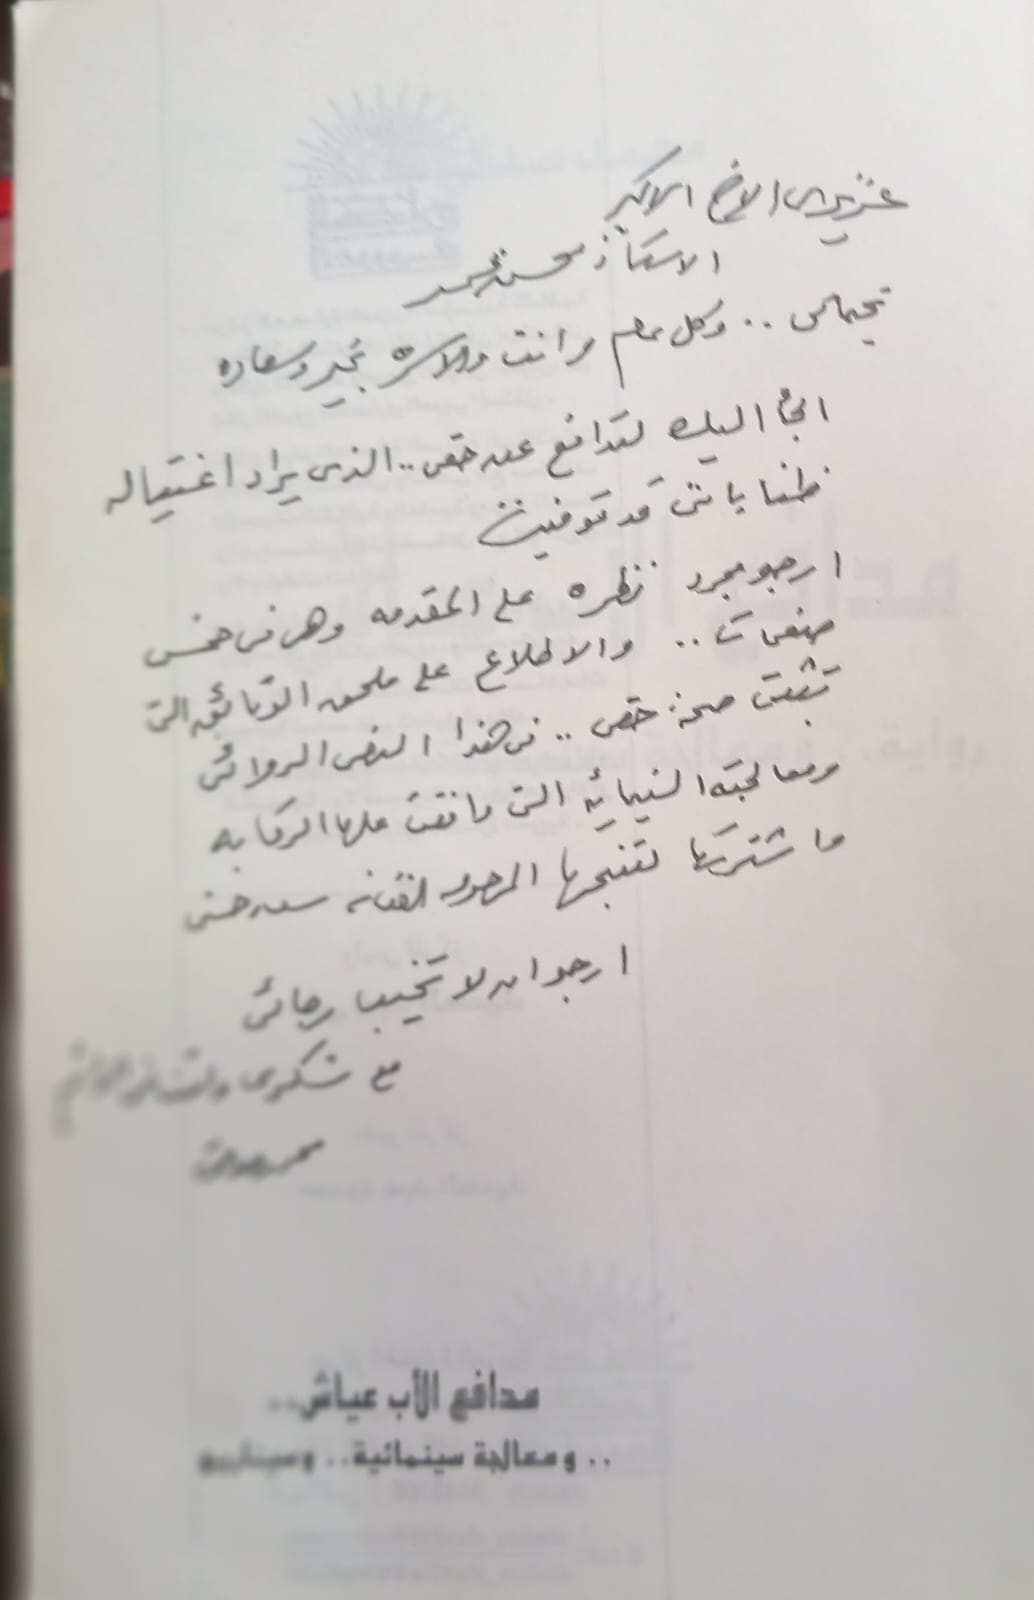 عزيزى الاخ الاكبر
الاستاذ محسن محمد
تحياتى .. وكل عام وانت والاسره بخير وسعاده
الجأ اليك لتدافع عن حقى .. الذى يراد اغتياله
ظنا باننى قد توفيت
ارجو مجرد نظره على المقدمه وهى فى خمس
صفحات .. والاطلاع على ملحق الوثائق التى
تثبت صحة حقى .. فى هذا النص الروائى
ومعالجته السينمائيه التى وافقت عليها الرقابه
واشترتها لتنتجها المرحومه الفنانه سعاد حسنى
ارجو ان لا تخيب رجائى
مع شكرى
مدافع الأب عياش..
.. ومعالجة سينمائية.. وسيناريو